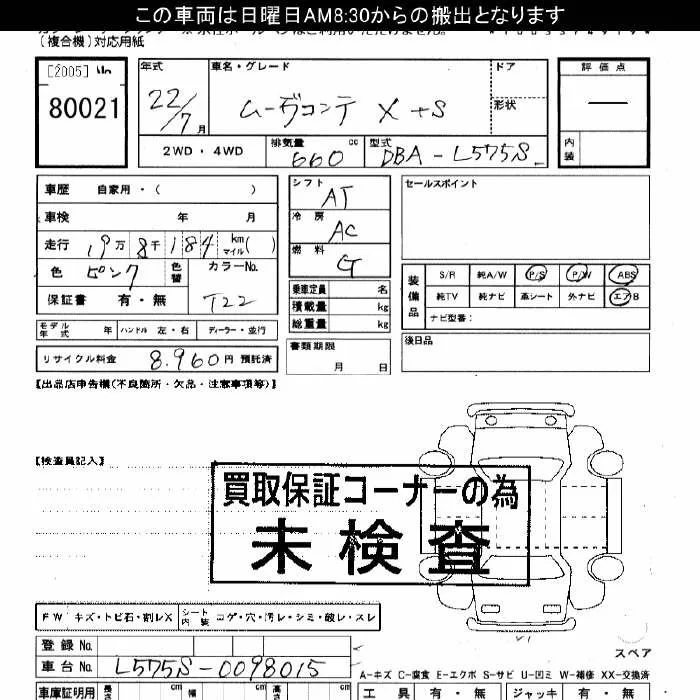 この車両は日曜日AM8:30からの搬出となります
(複合機)対応用紙
[2005]
80021
年式
22/7月
車名・グレード
ムーヴコンテ X+S
ドア
形状
評価点
―
内装
2WD・4WD
排気量 660 cc
型式 DBA-L575S
車歴 自家用・( )
車検 年 月
走行 19万8千184 km マイル( )
色 ピンク
色替
カラーNo. T22
保証書 有・無
シフト AT
冷房 AC
燃料 G
乗車定員 名
積載量 kg
総重量 kg
セールスポイント
装備品
S/R 純A/W P/S P/W ABS
純TV 純ナビ 革シート 外ナビ エアB
ナビ型番:
モデル年式 年 ハンドル 左・右 ディーラー・並行
リサイクル料金 8,960円 預託済
書類期限
月 日
後日品
【出品店申告欄(不良箇所・欠品・注意事項等)】
【検査員記入】
買取保証コーナーの為
未検査
FW キズ・トビ石・割レX
シート内装 コゲ・穴・汚レ・シミ・破レ・スレ
登録No.
車台No. L575S-0098015
スペア
A-キズ C-腐食 E-エクボ S-サビ U-凹ミ W-補修 XX-交換済
車庫証明用 長さ cm 幅 cm 高さ cm
工具 有・無 ジャッキ 有・無